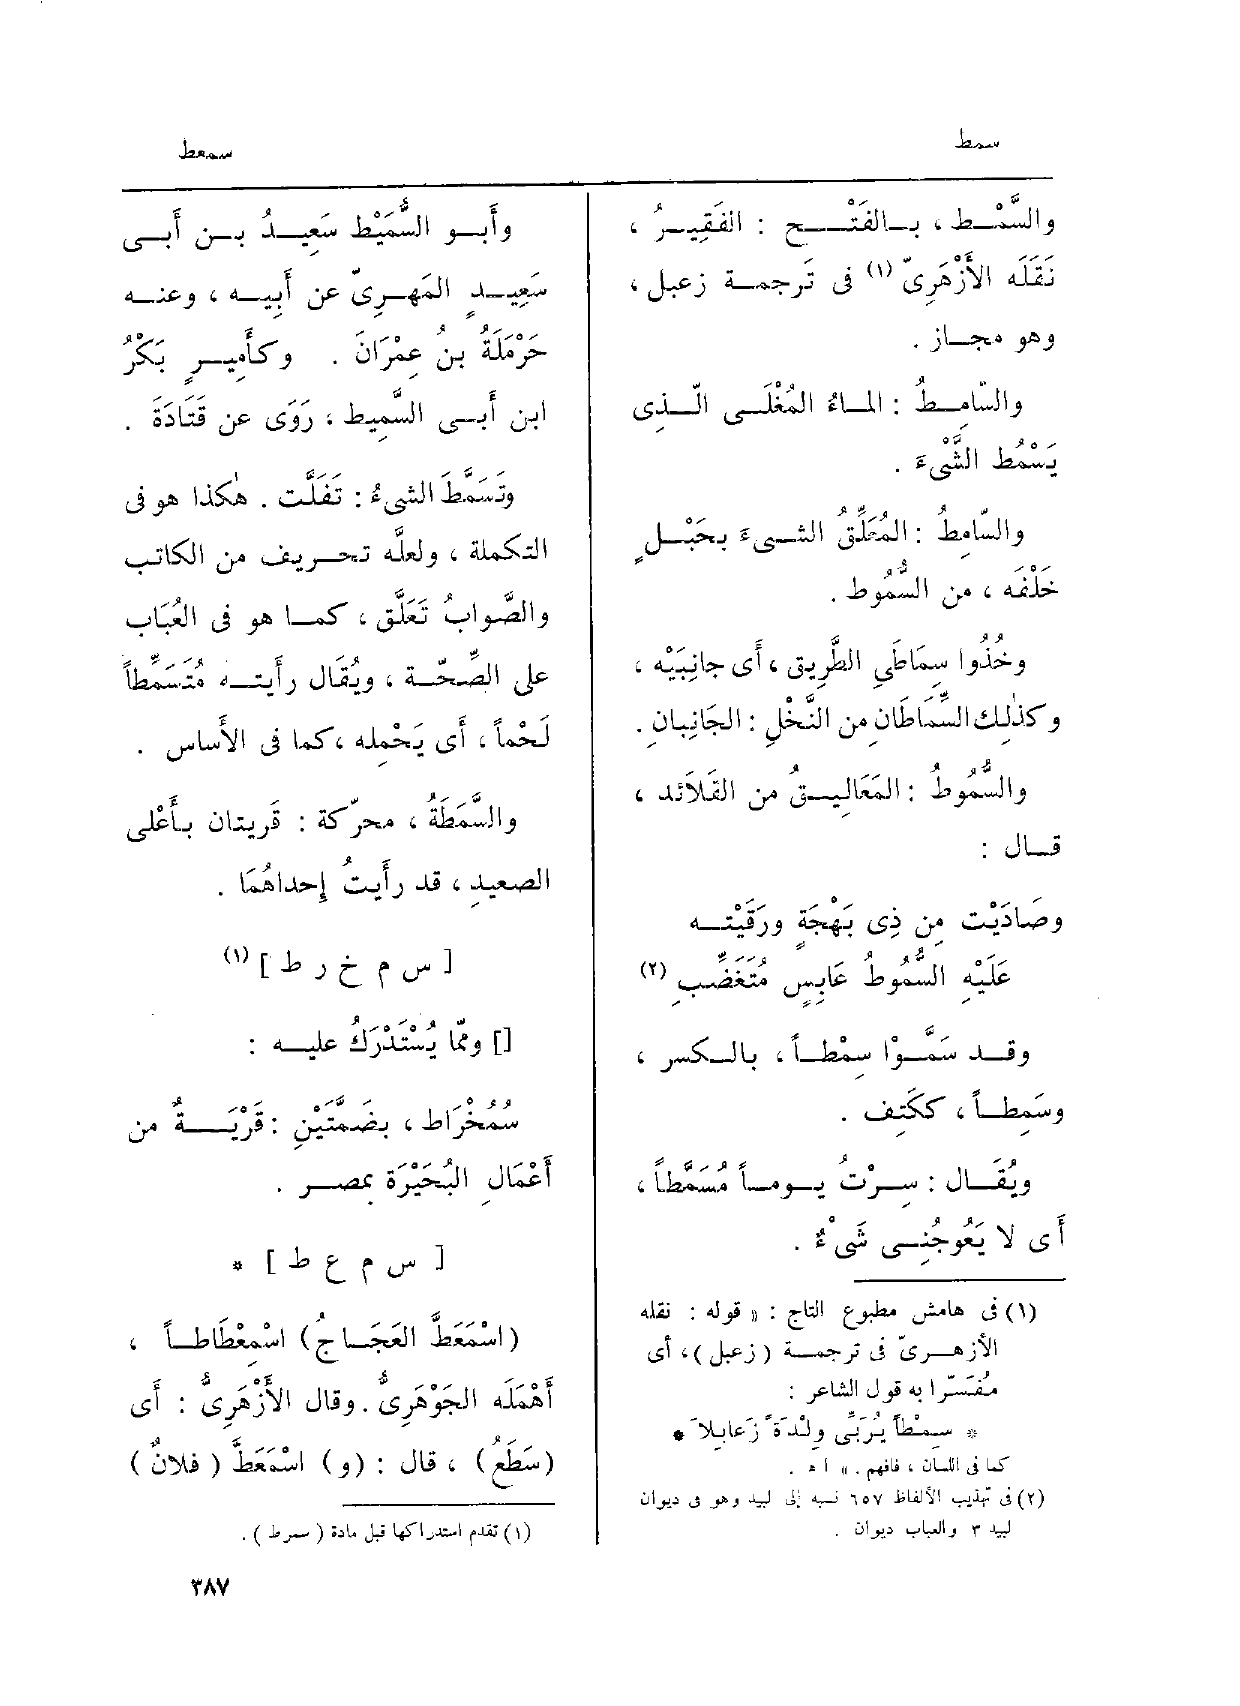 سمط
سمعط
والسَّمْط ، بالفَتْح : الفَقِيرُ ،
نَقَلَه الأَزْهَرِىّ (١) فى تَرجمة زعبل ،
وهو مجاز .
والسّامِطُ : الماءُ المُغْلَى الّذِى
يَسْمُط الشَّىْءَ .
والسّامِطُ : المُعَلِّقُ الشىءَ بحَبْلٍ
خَلْفَه ، من السُّمُوط .
وخُذُوا سِمَاطَىِ الطَّرِيق ، أَى جانِبَيْه ،
وكذٰلِك السِّمَاطَانِ من النَّخْلِ : الجَانِبانِ .
والسُّمُوطُ : المَعَالِيقُ من القَلَائد ،
قال :
وصَادَيْت مِن ذِى بَهْجَةٍ ورَقَيْتَه
عَلَيْهِ السُّمُوطُ عَابِسٍ مُتَغَضِّبِ (٢)
وقد سَمَّوْا سِمْطاً ، بالكسر ،
وسَمِطاً ، ككَتِف .
ويُقَال : سِرْتُ يوماً مُسَمَّطاً ،
أَى لا يَعُوجُنِى شَىْءٌ .
(١) فى هامش مطبوع التاج : « قوله : نقله
الأزهرىّ فى ترجمة ( زعبل ) ، أى
مُفَسِّرا به قول الشاعر :
* سِمْطاً يُرَبِّى وِلْدَةً زَعابِلاَ *
كما فى اللسان ، فافهم . » ا ه .
(٢) فى تهذيب الألفاظ ٦٥٧ نسبه إلى لبيد وهو فى ديوان
لبيد ٣ والعباب ديوان .
وأَبو السُّمَيْط سَعِيدُ بن أَبى
سَعِيدٍ المَهرِىّ عن أَبِيه ، وعنه
حَرْمَلَةُ بنُ عِمْرَانَ . وكأَمِيرٍ بَكْرُ
ابن أَبى السَّمِيط ، رَوَى عن قَتَادَةَ .
وتَسَمَّطَ الشىءُ : تَفَلَّت . هٰكذا هو فى
التكملة ، ولعلَّه تحريف من الكاتب
والصَّوابُ تَعَلَّق ، كما هو فى العُبَاب
على الصِّحّة ، ويُقَال رأَيته مُتَسَمِّطاً
لَحْماً ، أَى يَحْمِله ، كما فى الأَساس .
والسَّمَطَةُ ، محرّكة : قَريتان بأَعْلى
الصعيدِ ، قد رأَيتُ إِحداهُمَا .
[ س م خ ر ط ] (١)
[] وممّا يُسْتَدْرَكُ عليه :
سُمُخْرَاط ، بضَمَّتَيْنِ : قَرْيَةٌ من
أَعْمَالِ البُحَيْرَة بمصر .
[ س م ع ط ] *
(اسْمَعَطَّ العَجَاجُ) اسْمِعْطَاطاً ،
أَهْمَلَه الجَوْهَرِىُّ . وقال الأَزْهَرِىُّ : أَى
(سَطَعَ) ، قال : (و) اسْمَعَطَّ ( فلانٌ )
(١) تقدم استدراكها قبل مادة ( سرط ) .
٣٨٧